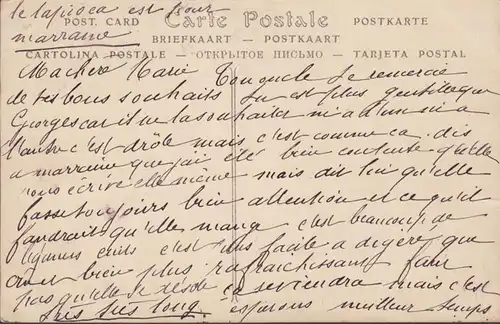 le tapioca est pour
marraine
POST. CARD Carte Postale POSTKARTE
BRIEFKAART - POSTKAART
CARTOLINA POSTALE - ОТКРЫТОЕ ПИСЬМО - TARJETA POSTAL
Ma chère Marie Ton oncle te remercie
de tes bons souhaits tu est plus gentille que
Georges car il ne la souhaiter ni a l'un ni a
l'autre c'est drôle mais c'est comme ca. dis
a marraine que j'ai été bien contente qu'elle
nous écrive elle même mais dit lui qu'elle
fasse toujours bien attention et ce qu'il
faudrait qu'elle mange c'est beaucoup de
légumes cuits c'est plus facile a digéré que
et bien plus rafraichissant faut
pas qu'elle se désole ca se tiendra mais c'est
très très long. espérons meilleur temps